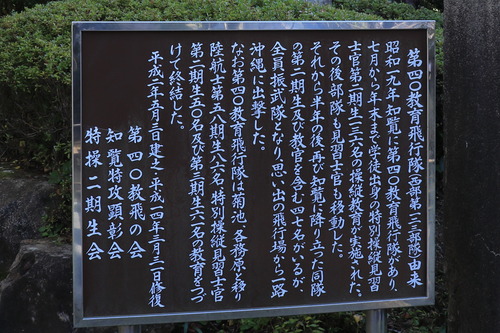 第四〇教育飛行隊(西部第一二三部隊)由来
昭和一九年知覧に第四〇教育飛行隊があり、
七月から年末まで学徒出身の特別操縦見習
士官第二期生一三六名の操縦教育が実施された。
その後部隊と見習士官らも移動した。
それから半年の後、再び知覧に降り立った同隊
の第二期生及び教官を含む四七名がいるが、
全員振武隊となり、思い出の飛行場から一路
沖縄に出撃した。
なお第四〇教育飛行隊は菊池、各務原と移り
陸航士第五八期生八六名、特別操縦見習士官
第二期生五〇名及び第三期生六二名の教育をつづ
けて終結した。
平成八年五月三日建之 平成二四年三月三一日修復
第四〇教飛の会
知覧特攻顕彰会
特操二期生会